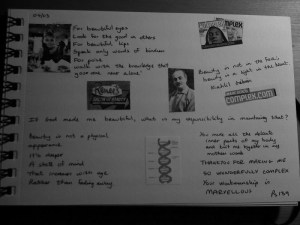 For beautiful eyes
Look for the good in others
For beautiful lips
Speak only words of kindness
For poise
walk with the knowledge that
you are never alone!
COMPLEX
Beauty is not in the face;
beauty is a light in the heart
Kahlil Gibran
COMPLEX.COM
If God made me beautiful, what is my responsibility in maintaining that?
Beauty is not a physical
appearance
It's deeper
A state of mind
That matures with age
Rather than fading away
You made all the delicate
inner parts of my body
and knit me together in my
mothers womb
THANKYOU FOR MAKING ME
SO WONDERFULLY COMPLEX
Your workmanship is
MARVELLOUS